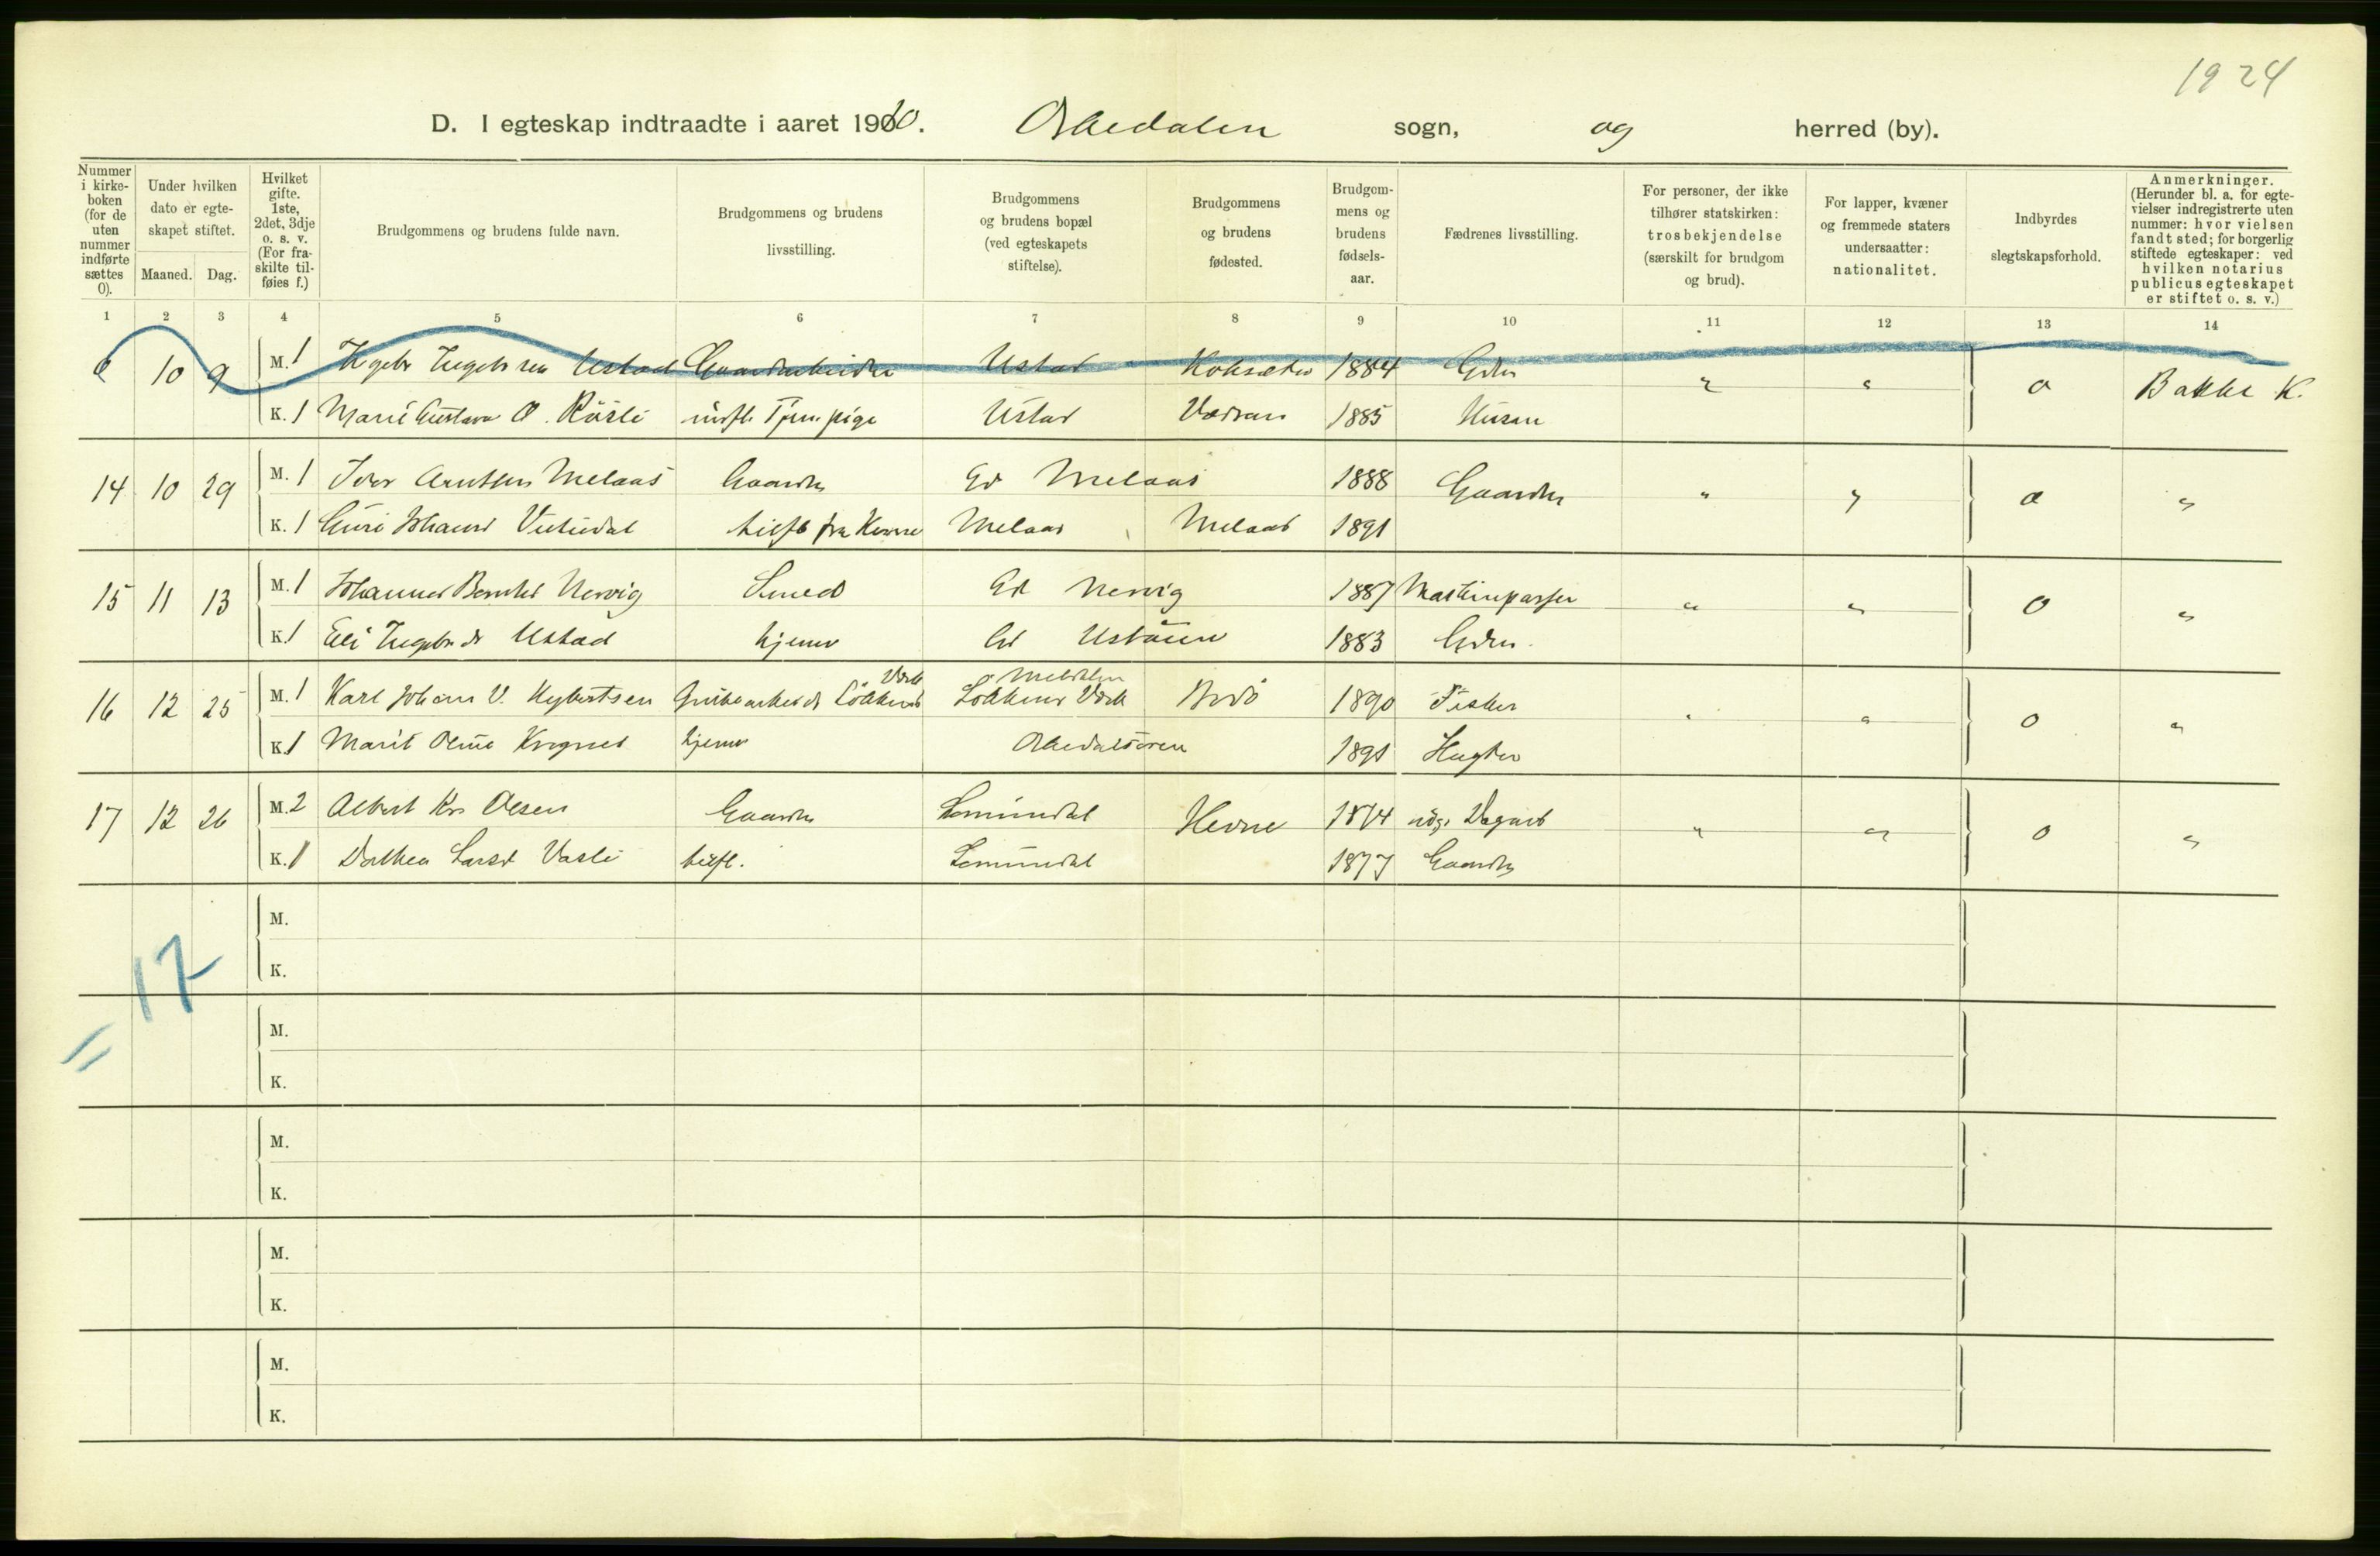 1924
D. I egteskap indtraadte i aaret 1910. Orkedalen sogn, og herred (by).
Nummer i kirkeboken (for de uten nummer indførte sættes 0).
Under hvilken dato er egteskapet stiftet.
Maaned. Dag.
Hvilket gifte. 1ste, 2det, 3dje o. s. v. (For fraskilte tilføies f.)
Brudgommens og brudens fulde navn.
Brudgommens og brudens livsstilling.
Brudgommens og brudens bopæl (ved egteskapets stiftelse).
Brudgommens og brudens fødested.
Brudgommens og brudens fødselsaar.
Fædrenes livsstilling.
For personer, der ikke tilhører statskirken: trosbekjendelse (særskilt for brudgom og brud).
For lapper, kvæner og fremmede staters undersaatter: nationalitet.
Indbyrdes slegtskapsforhold.
Anmerkninger. (Herunder bl. a. for egtevielser indregistrerte uten nummer: hvor vielsen fandt sted; for borgerlig stiftede egteskaper: ved hvilken notarius publicus egteskapet er stiftet o. s. v.)
1 2 3 4 5 6 7 8 9 10 11 12 13 14
0 10 9 M. 1 Ingebr Ingebrsen Ustad Gaardarbeider Ustad 1884 Gdr " " 0 Bakke K.
K. 1 Marie Gustava O. Ustad 1885 Husm
14 10 29 M. 1 Iver Arntsen Melaas Gaardbr Gd Melaas 1888 Gaardbr " " 0 "
K. 1 Guri Johansd hilfb fra Hevne Melaas Melaas 1891
15 11 13 M. 1 Johannes Bernhd Nervig Smed Gd Nervig 1887 Maskinpasser " " 0 "
K. 1 Eli Ingebrdr Ustad hjemv Gd Ustøien 1883 Gdbr.
16 12 25 M. 1 Karl Johan V. Nybertsen Grubearbeidr Løkkens Værk Løkkens Værk Meldalen 1890 Fisker " " 0 "
K. 1 Marit Oline Krognes hjemv Orkedalsøren 1891
17 12 26 M. 2 Albert Kr. Olsen Gaardbr Lomundal Hevne 1874 " " 0 "
K. 1 Dorthea Larsd Vasli hilfb. Lomundal 1877 Gaardbr
M.
K.
= 17
M.
K.
M.
K.
M.
K.
M.
K.